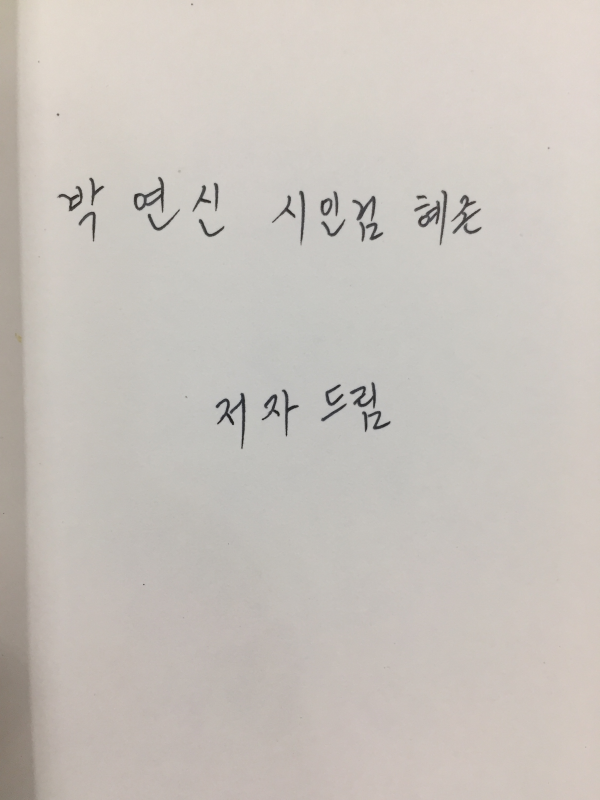 박 연신 시인검 혜존
저자 드림